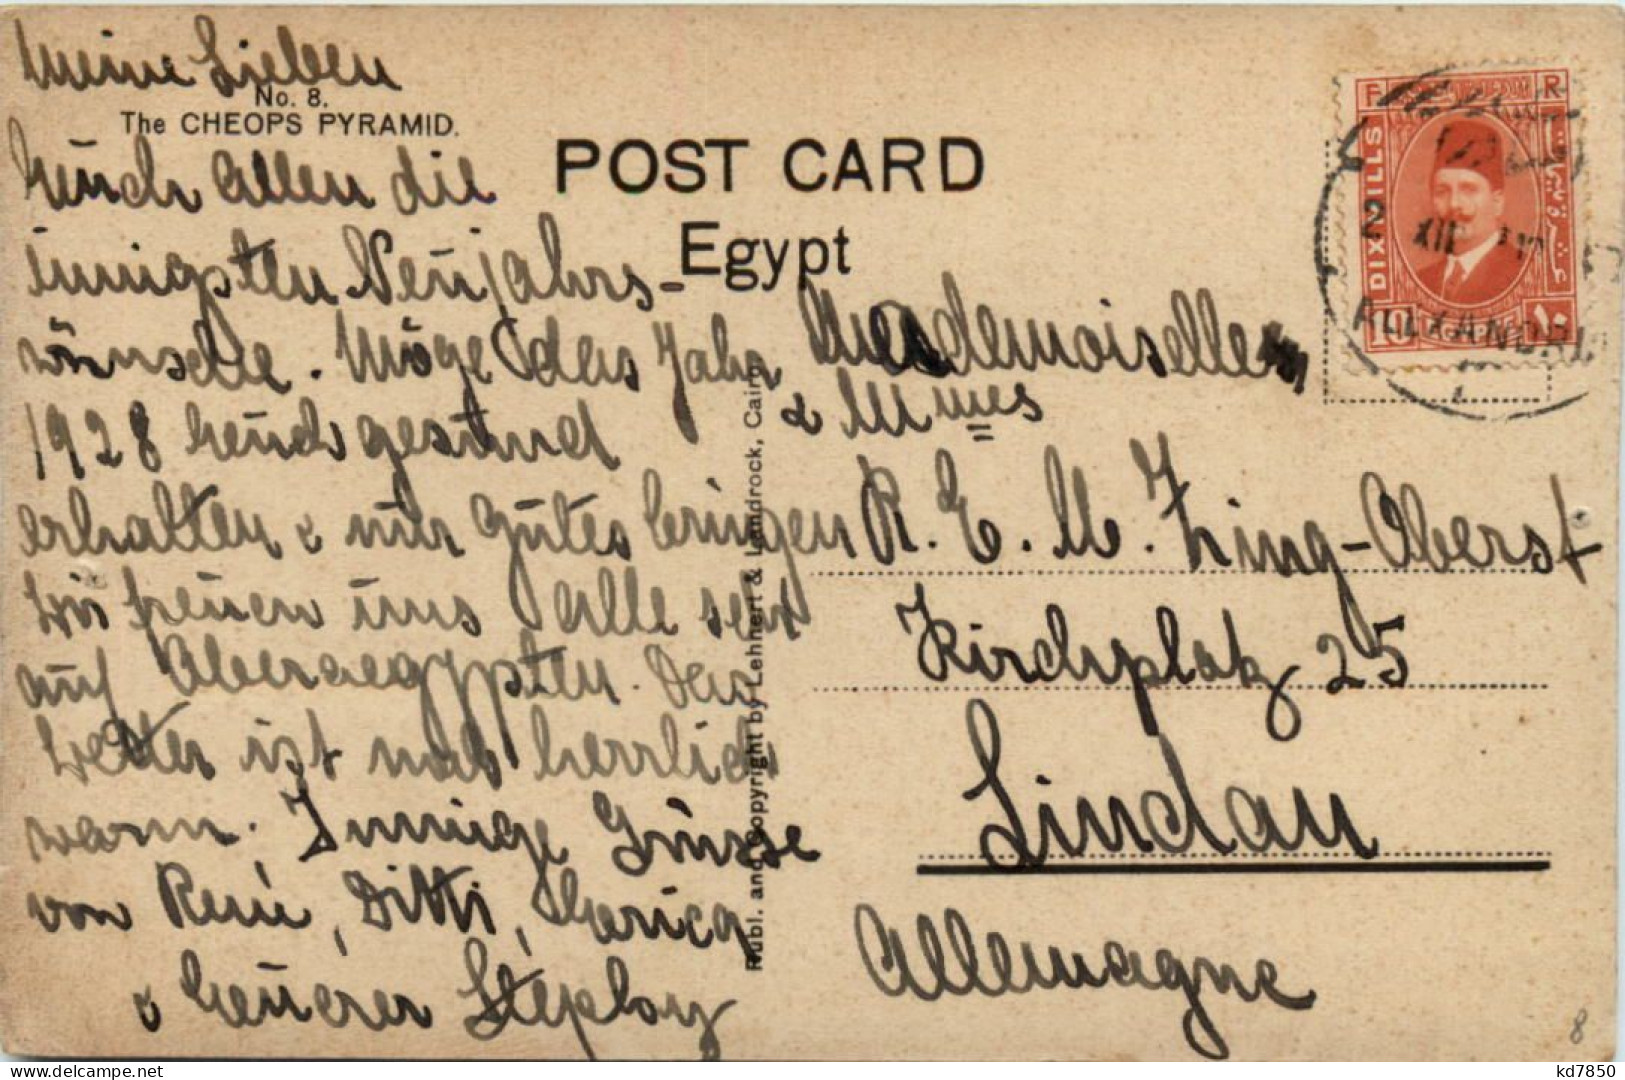 Meine Lieben
No. 8.
The CHEOPS PYRAMID.
POST CARD
Egypt
Euch allen die
innigsten Neujahrs-
wünsche. Möge das Jahr
1928 Euch gesund
erhalten & nur gutes bringen
Wir freuen uns alle sehr
auf Oberaegypten. Das
Wetter ist noch herrlich
warm. Innige Grüsse
von René, Ditti, Erica
& Euerer Stephy
Publ. and Copyright by Lehnert & Landrock, Cairo.
Mademoiselle
& Mmes
R. E. M. Zing-Oberst
Kirchplatz 25
Lindau
Allemagne
F R
DIX MILLS
10 ١٠
2 XII
ALEXANDRI
8
kd7850